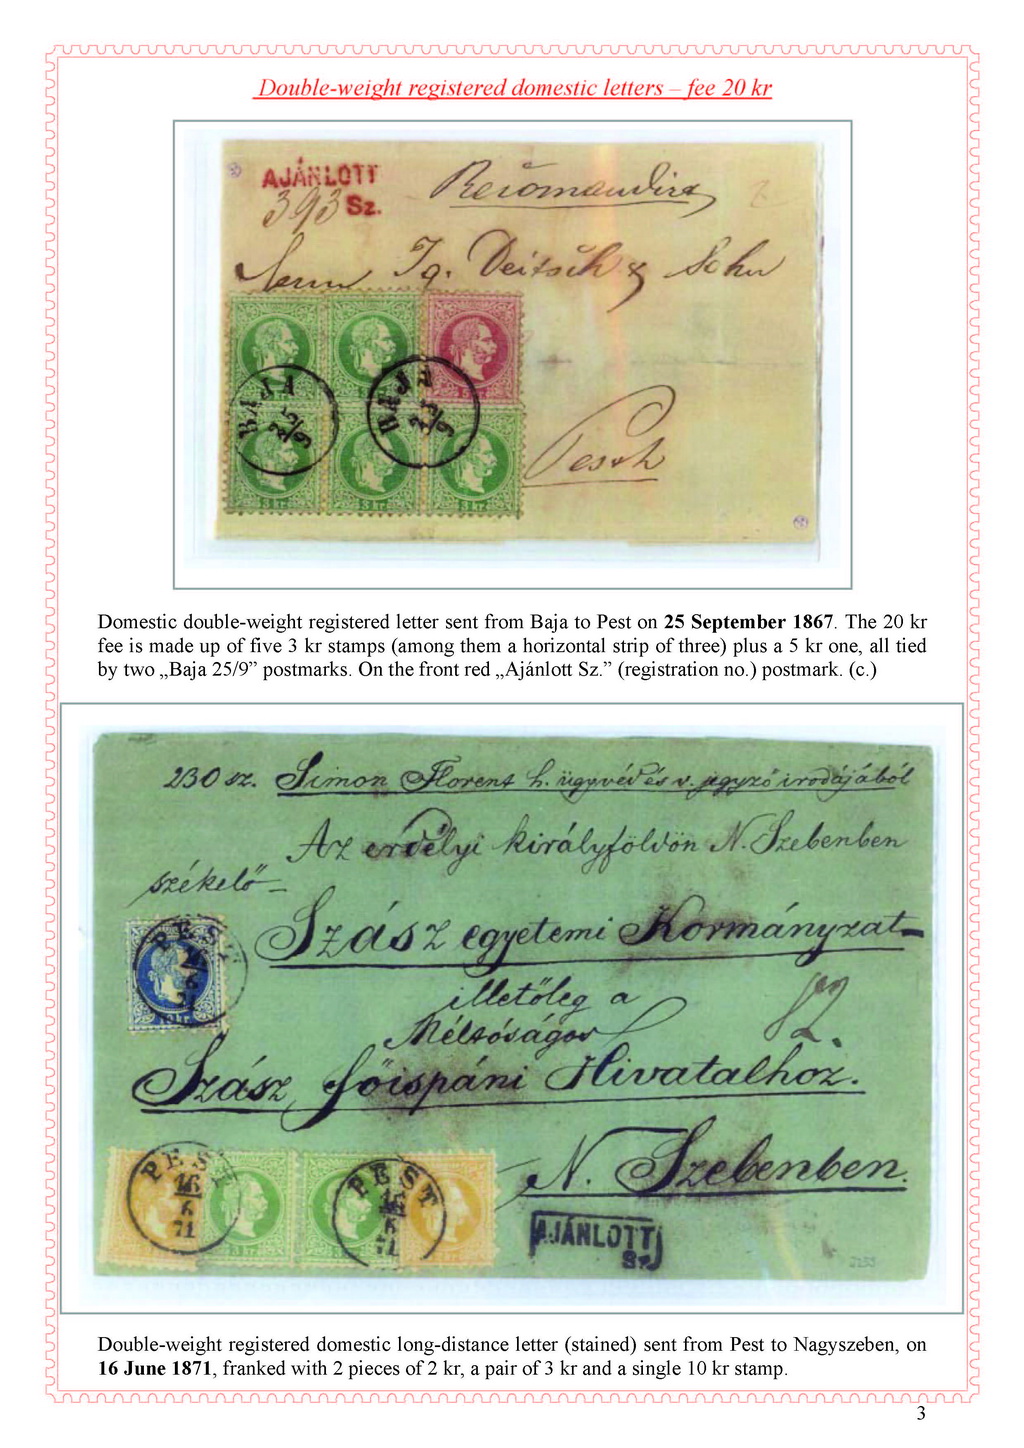 Double-weight registered domestic letters – fee 20 kr
AJÁNLOTT
393 Sz.
Recomandirt
Herrn Ig. Deitsch & Sohn
BAJA 25/9
BAJA 25/9
3 kr.
3 kr.
3 kr.
Pesth
Domestic double-weight registered letter sent from Baja to Pest on 25 September 1867. The 20 kr
fee is made up of five 3 kr stamps (among them a horizontal strip of three) plus a 5 kr one, all tied
by two „Baja 25/9” postmarks. On the front red „Ajánlott Sz.” (registration no.) postmark. (c.)
230 sz. Simon Florent h. ügyvéd és v. jegyző irodájából
Az erdélyi királyföldön N. Szebenben
székelő
Szász egyetemi Kormányzat
PEST 16 6 71
10 kr.
illetőleg a
Méltóságos
Szász főispáni Hivatalhoz.
N. Szebenben.
PEST 16 6 71
3 kr.
PEST 16 6 71
AJÁNLOTT
Sz.
Double-weight registered domestic long-distance letter (stained) sent from Pest to Nagyszeben, on
16 June 1871, franked with 2 pieces of 2 kr, a pair of 3 kr and a single 10 kr stamp.
3